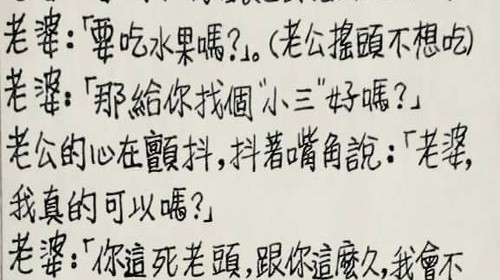 老婆:「要吃水果嗎?」。(老公搖頭不想吃)
老婆:「那給你找個"小三"好嗎?」
老公的心在顫抖,抖著嘴角說:「老婆,
我真的可以嗎?」
老婆:「你這死老頭,跟你這麼久,我會不